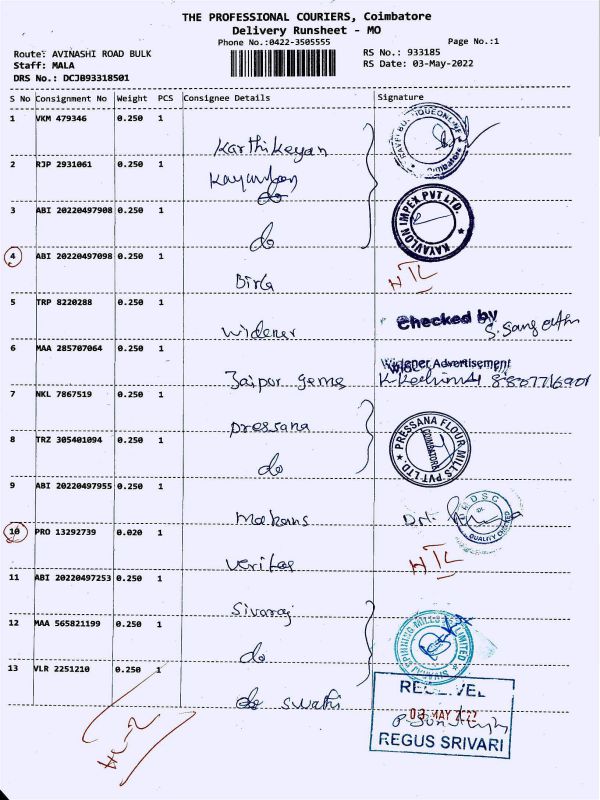 THE PROFESSIONAL COURIERS, Coimbatore
Delivery Runsheet - MO
Phone No.:0422-3505555
Page No.:1
Route: AVINASHI ROAD BULK
RS No.: 933185
Staff: MALA
RS Date: 03-May-2022
DRS No.: DCJB93318501
S No Consignment No Weight PCS Consignee Details Signature
1 VKM 479346 0.250 1
Karthikeyan
2 RJP 2931061 0.250 1
Kayavlon
do
3 ABI 20220497908 0.250 1
KAYAVLON IMPEX PVT LTD.
do
4 ABI 20220497098 0.250 1
Birla NTL
5 TRP 8220288 0.250 1
Widener Checked by
6 MAA 285707064 0.250 1
Widener Advertisement
Jaipur gems
7 NKL 7867519 0.250 1
Pressana
PRESSANA FLOUR MILLS PVT LTD.
COIMBATORE
8 TRZ 305401094 0.250 1
do
9 ABI 20220497955 0.250 1
QUALITY CHECKED
10 PRO 13292739 0.020 1
Veritas NTL
11 ABI 20220497253 0.250 1
Sivaraj
12 MAA 565821199 0.250 1
SIVARAJ SPINNING MILLS LIMITED
do
13 VLR 2251210 0.250 1
do swathi
RECEIVED
03 MAY 2022
REGUS SRIVARI